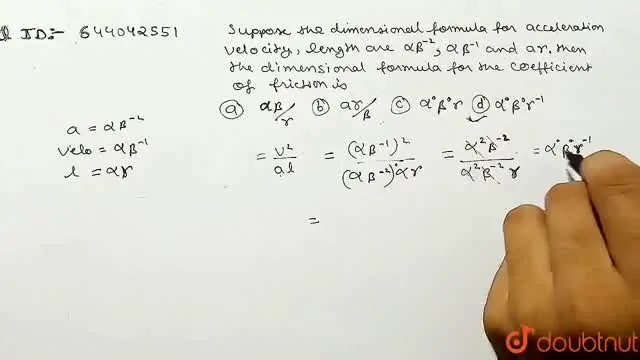 Q ID:- 644042551
Suppose the dimensional formula for acceleration
velocity, length are αβ⁻², αβ⁻¹ and ar. then
the dimensional formula for the coefficient
of friction is
(a) αβ/r (b) ar/β (c) α°β°r (d) α°β°r⁻¹
a = αβ⁻²
velo = αβ⁻¹
l = αγ
= v²/al = (αβ⁻¹)²/(αβ⁻²)αγ = α²β⁻²/α²β⁻²γ = α°β°γ⁻¹
=
doubtnut